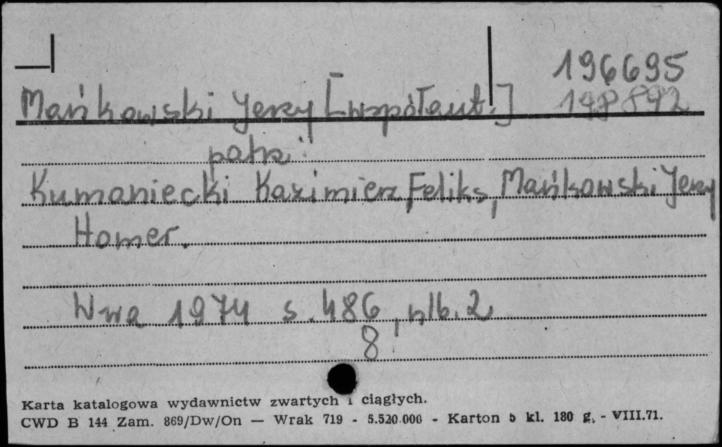 196695
Mańkowski Jerzy [współaut.] 198892
patrz:
Kumaniecki Kazimierz Feliks, Mańkowski Jerzy
Homer.
Wwa 1974 s. 486, nlb. 2
8°
Karta katalogowa wydawnictw zwartych i ciągłych.
CWD B 144 Zam. 869/Dw/On — Wrak 719 - 5.520.000 - Karton b kl. 180 g. - VIII.71.